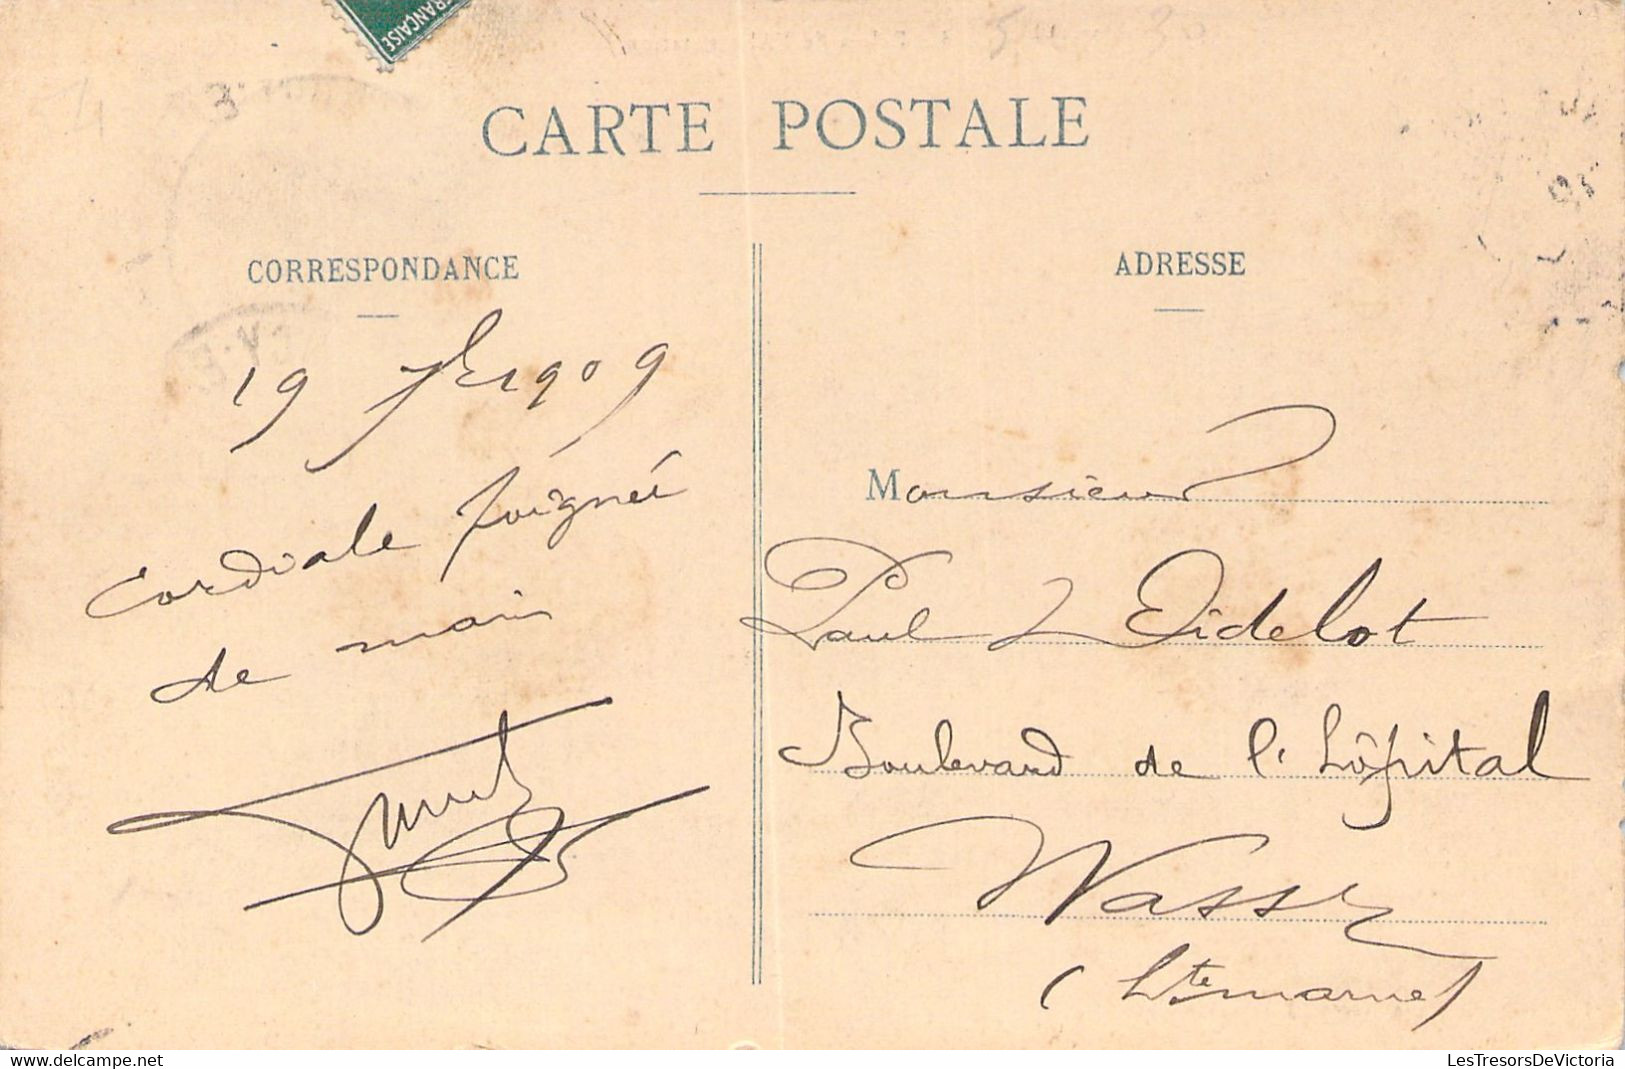 FRANÇAISE
CARTE POSTALE
CORRESPONDANCE
19 fer 1909
Cordiale poignée
de main
ADRESSE
Monsieur
Paul Didelot
Boulevard de l'hôpital
Wassy
(Hte marne)
LesTresorsDeVictoria